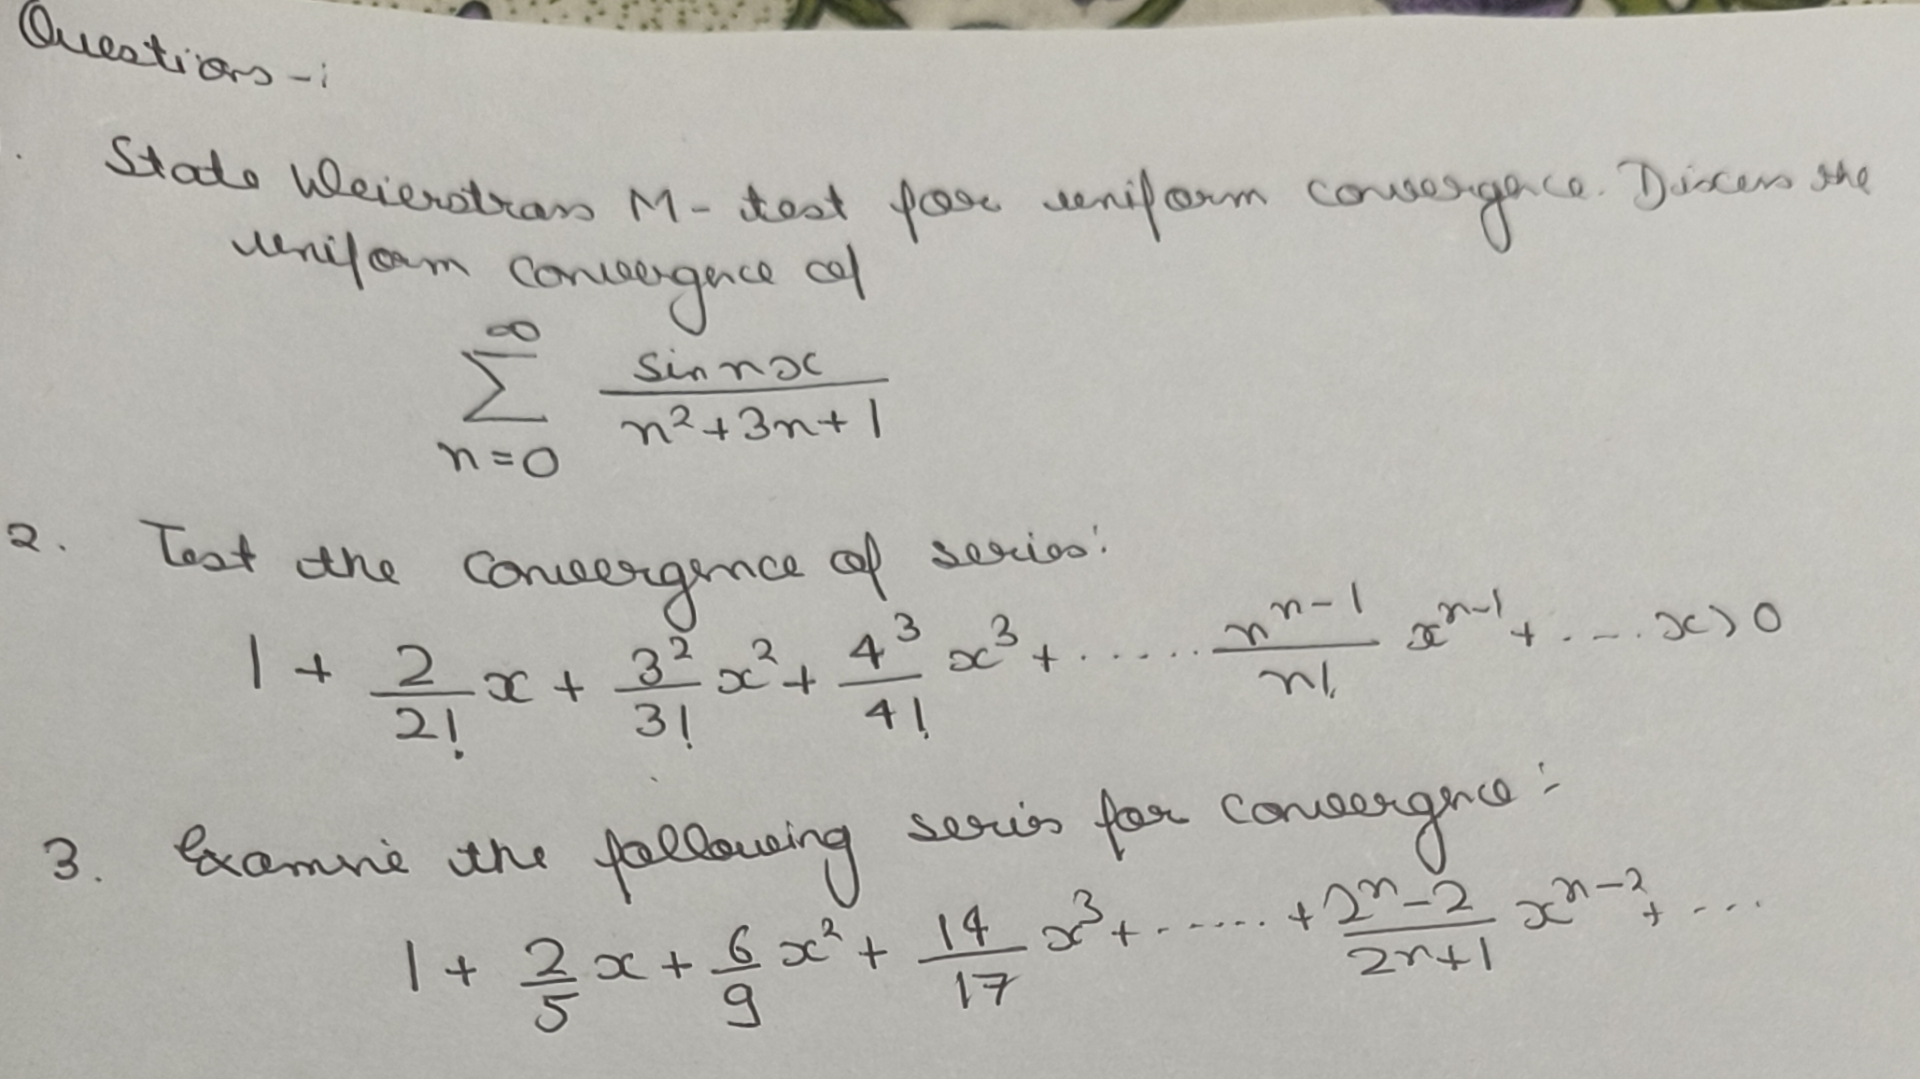 Questions -:
State Weierstrass M-test for uniform convergence. Discuss the
uniform convergence of
∑_{n=0}^{∞} sin nx / (n²+3n+1)
2. Test the convergence of series:
1 + 2/2! x + 3²/3! x² + 4³/4! x³ + ...... n^{n-1}/n! x^{n-1} + .... x>0
3. Examine the following series for convergence:-
1 + 2/5 x + 6/9 x² + 14/17 x³ + ...... + (2ⁿ-2)/(2ⁿ+1) x^{n-2} + ...